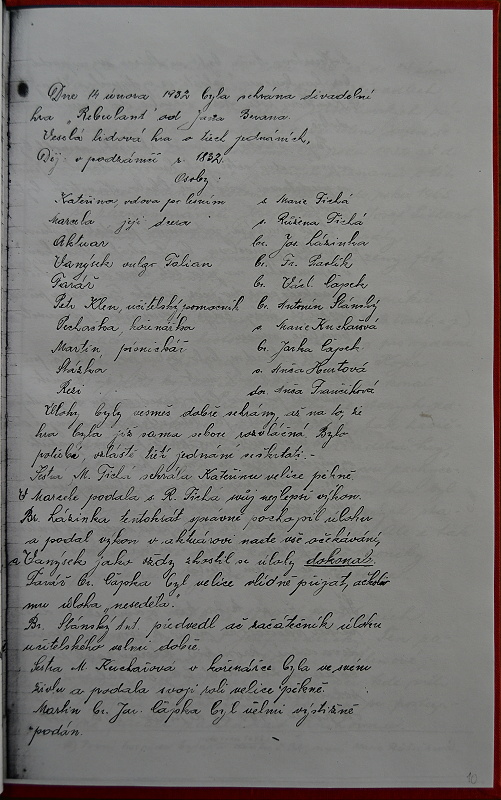 Dne 14 února 1932 byla sehrána divadelní
hra „Rebulant" od Jana
Veselá lidová hra o třech jednáních,
Děj v podzámčí r. 1832.
Osoby:
Kateřina, vdova po lesním s. Marie Tichá
Marcela její dcera s. Růžena Tichá
Aktuar br. Jos. Lázinka
Vanýsek vulgo Talian br. Fr. Pavlík
Farář br. Václ. Čapek
Petr Klen, učitelský pomocník br. Antonín Slánský
Pechačka, kořenářka s. Marie Kuchařová
Martin písničkář br. Jarka Čapek
Stázka s. Anša Hurtová
Rézi dor. Anša Frančíková
Úlohy byly vesměs dobře sehrány, až na to, že
hra byla již sama sebou rozvláčná. Bylo
potřebí, zvláště třetí jednání seškrtati. –
Sestra M. Tichá sehrála Kateřinu velice pěkně.
V Marcele podala s. R. Tichá svůj nejlepší výkon.
Br. Lázinka tentokrát správně pochopil úlohu
a podal výkon v aktuárovi nade vše očekávání,
a Vanýsek jako vždy zhostil se úlohy dokonale.
Farář br. Čapka byl velice vlídně přijat, ačkoliv
mu úloha „neseděla".
Br. Slánský Ant. předvedl ač začátečník úlohu
učitelského velmi dobře.
Sestra M. Kuchařová v kořenářce byla ve svém
živlu a podala svoji roli velice pěkně.
Martin br. Jar. Čapka byl velmi výstižně
podán.
10